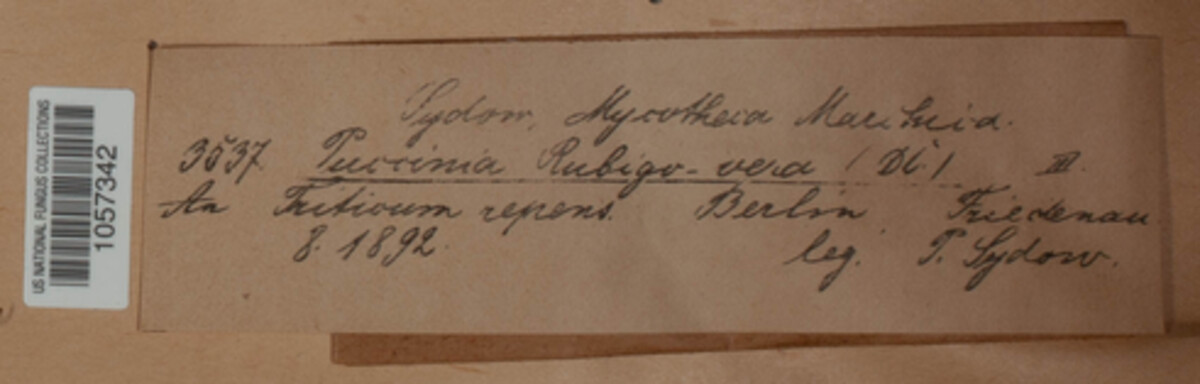 US NATIONAL FUNGUS COLLECTIONS
1057342
Sydow, Mycotheca Marchica.
3537 Puccinia Rubigo-vera (DC.) III.
An Triticum repens. Berlin Friedenau
8. 1892. leg. P. Sydow.